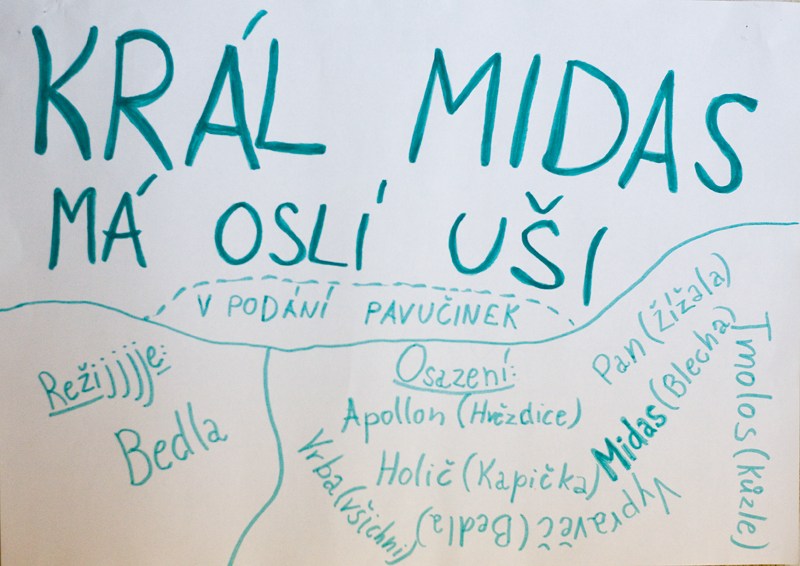 KRÁL MIDAS
MÁ OSLÍ UŠI
V PODÁNÍ PAVUČINEK
Režijjjje:
Bedla
Osazení:
Apollon (Hvězdice)
Holič (Kapička)
Vrba (všichni)
Vypravěč (Bedla)
Midas (Blecha)
Pan (Žížala)
Tmolos (Kůzle)